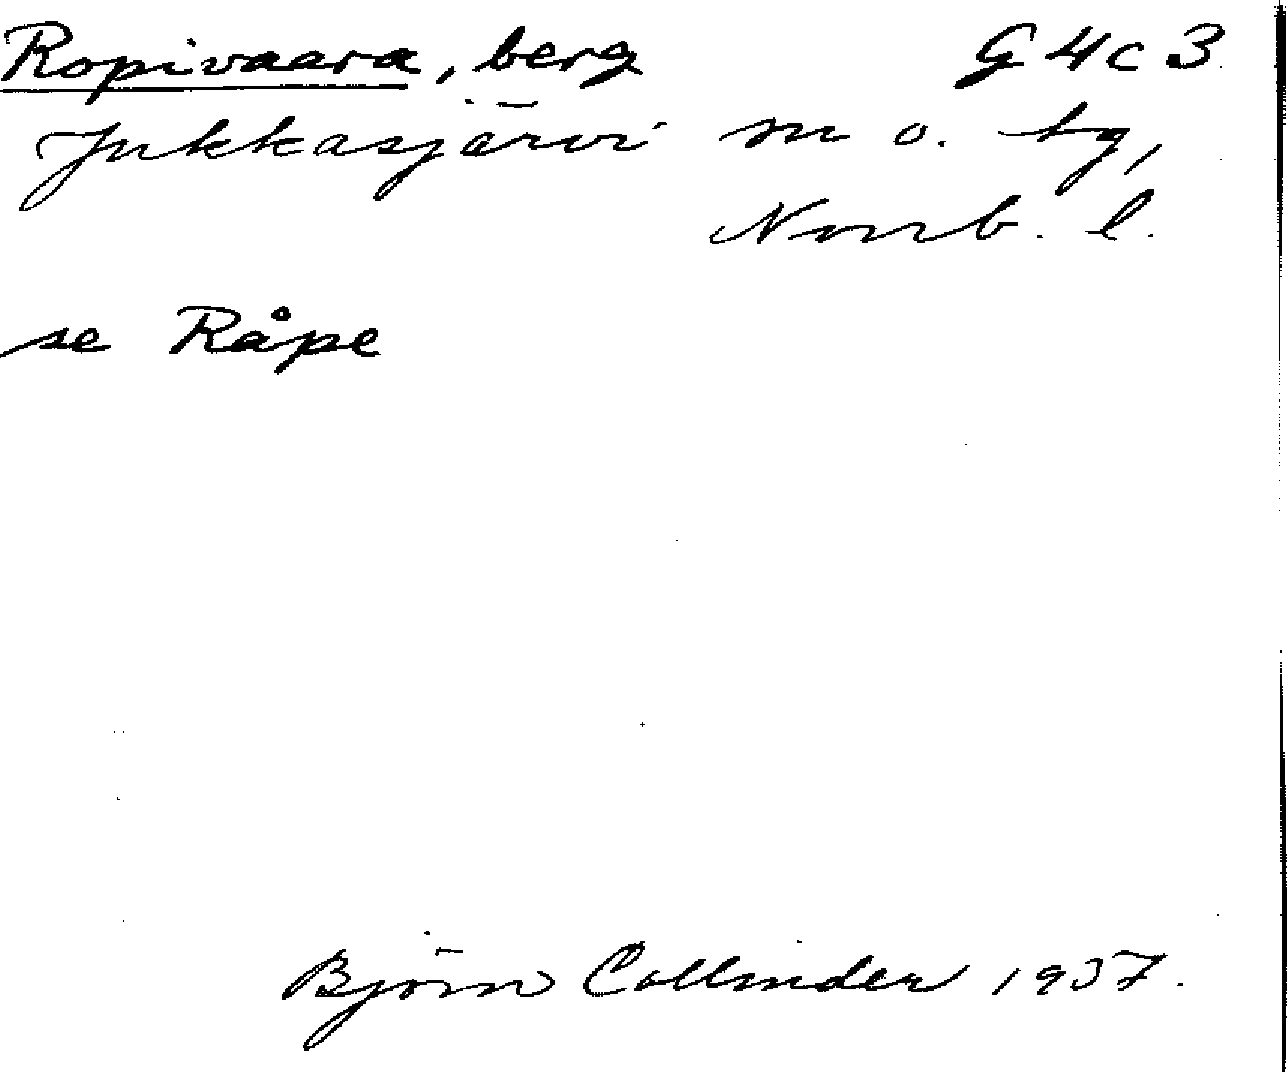 Ropivaara, berg G4c3
Jukkasjärvi sn o. tg,
Norrb. l.
se Råpe
Björn Collinder 1957.